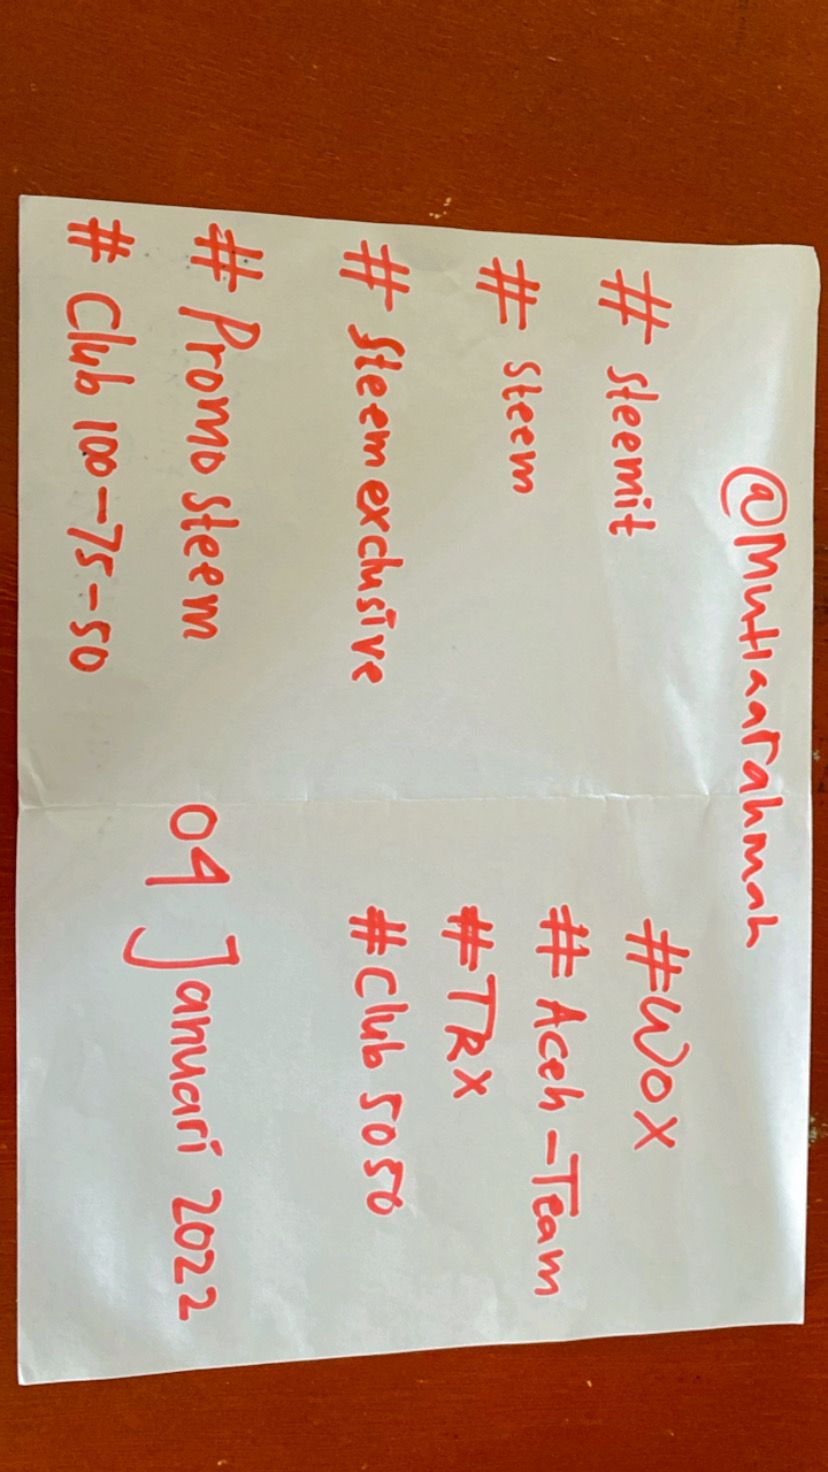 @Mutiaarahmah
# steemit
# steem
# steemexclusive
# Promo steem
# Club 100-75-50
#WOX
# Aceh-Team
#TRX
#Club 5050
04 Januari 2022